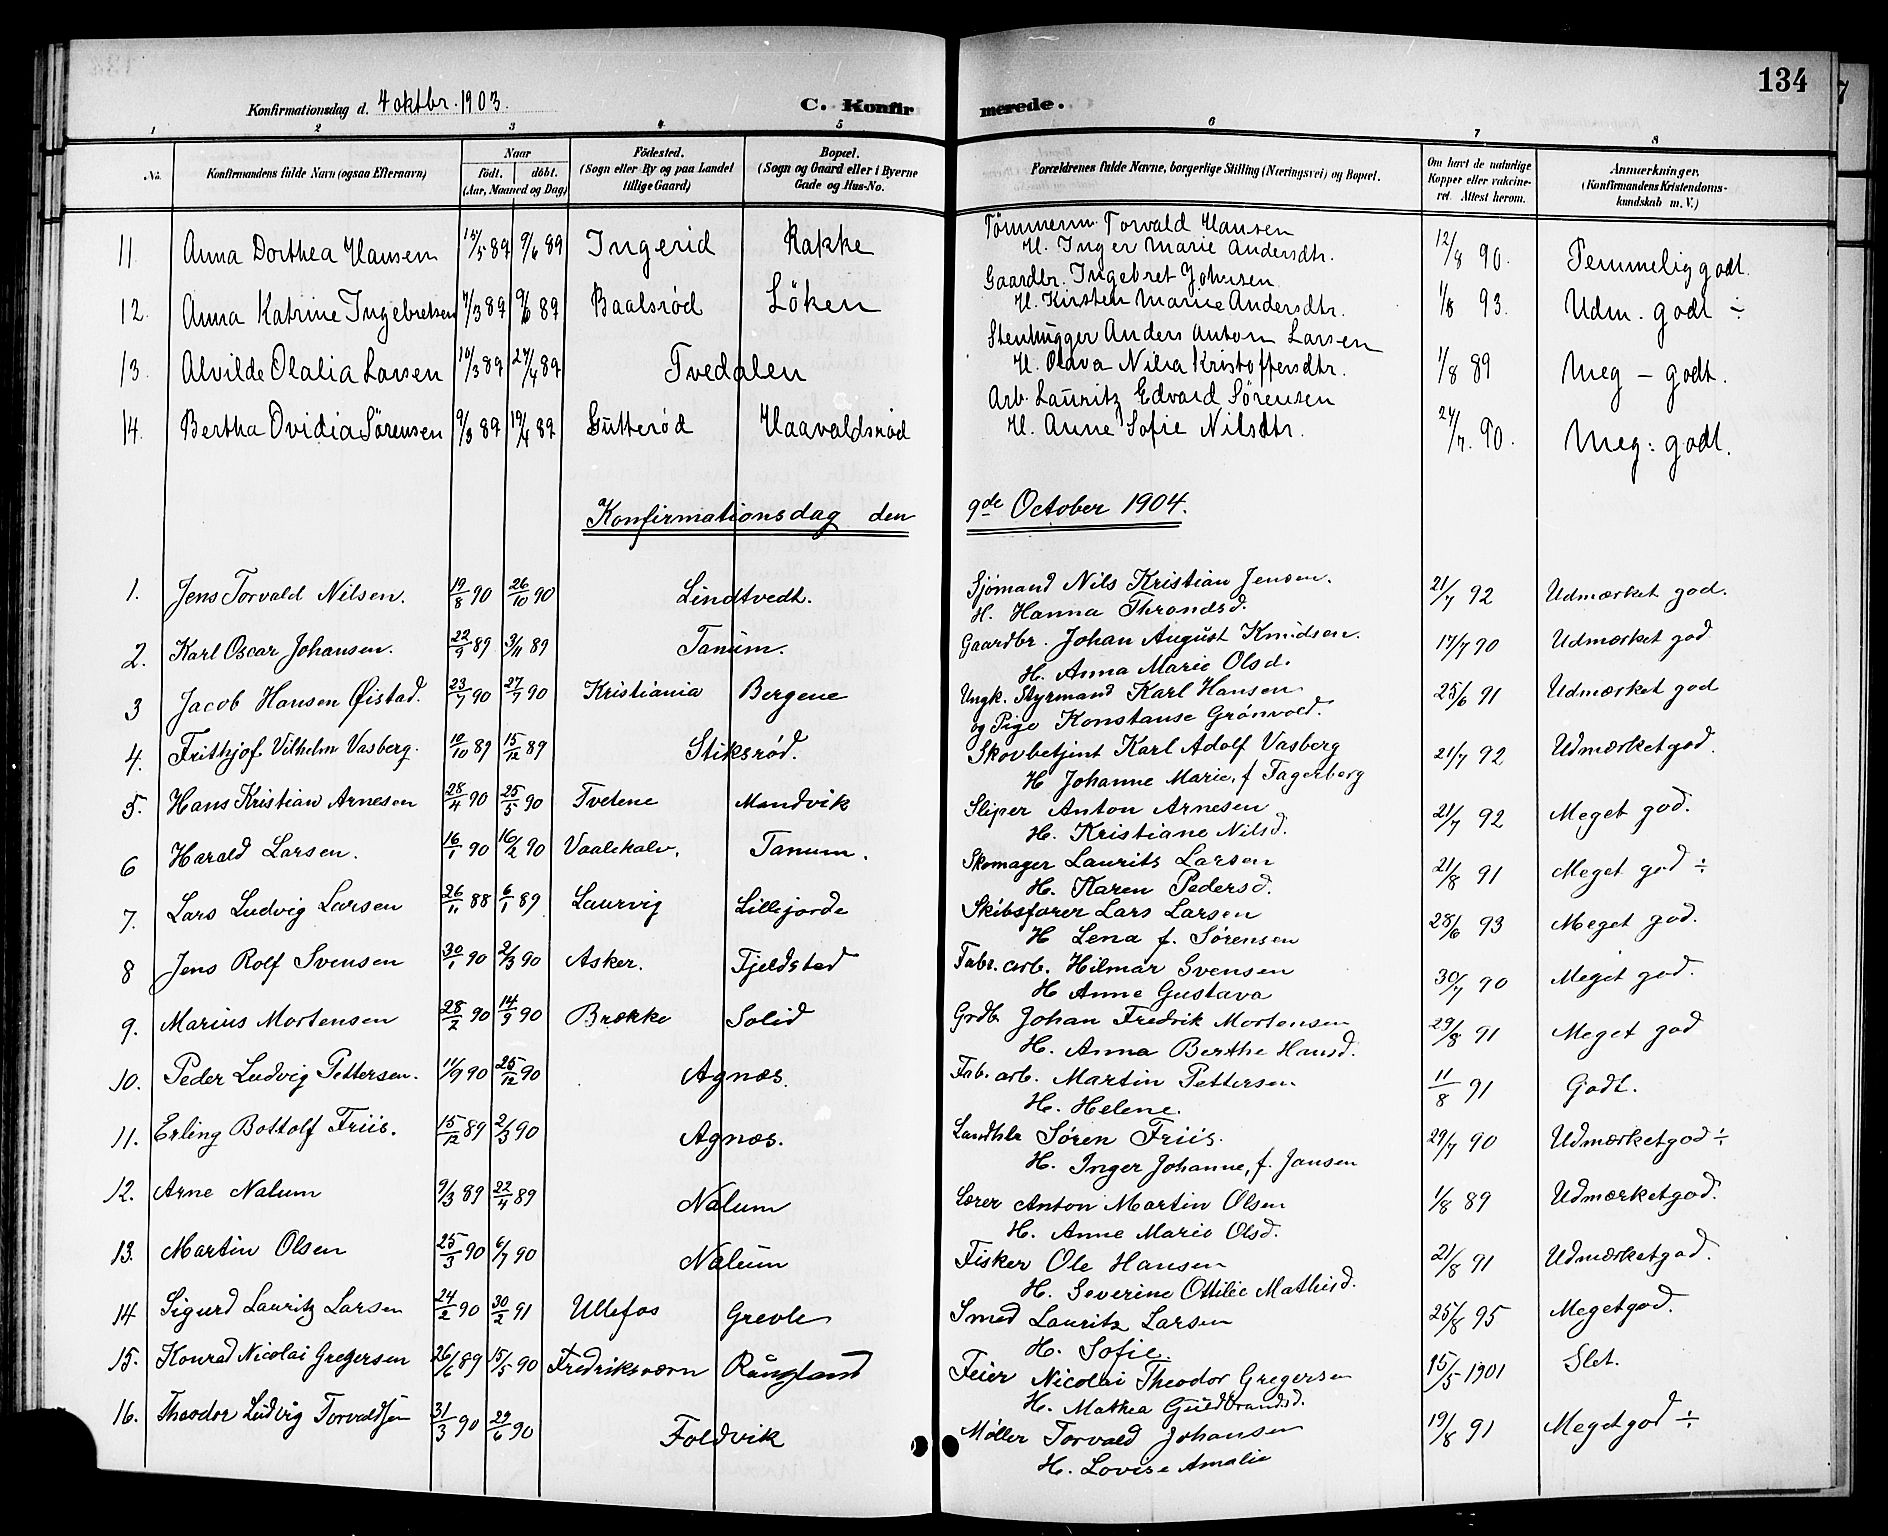 134
Konfirmationsdag d. 4 oktbr. 1903.
C. Konfirmerede.
1 2 3 4 5 6 7 8
No. Konfirmandens fulde Navn (ogsaa Efternavn) Naar født. døbt. (Aar, Maaned og Dag) Fødested. (Sogn eller By og paa Landet tillige Gaard) Bopæl. (Sogn og Gaard eller i Byerne Gade og Hus-No. Forældrenes fulde Navne, borgerlige Stilling (Næringsvei) og Bopæl. Om havt de naturlige Kopper eller vakcineret. Attest herom. Anmærkninger, (Konfirmandens Kristendomskundskab m. V.)
11 Anna Dorthea Hansen 15/5 89 9/6 89 Ingerid Rakke Tømmerm. Torvald Hansen 12/8 90. Temmelig godt.
H. Inger Marie Andersdtr.
12. Anna Katrine Ingebretsen 7/3 89 9/6 89 Baalsrød Löken Gaardbr. Ingebret Johnsen 1/8 93. Udm. godt ÷
H. Kirsten Marie Andersdtr.
13. Alvilde Olalia Larsen 10/3 89 27/4 89 Tvedalen Stenhugger Anders Anton Larsen 1/8 89 Meg - godt.
H. Olava Nilia Kristoffersdtr.
14. Bertha Ovidia Sørensen 9/3 89 19/4 89 Gutterød Haavaldsrød Arb. Lauritz Edvard Sørensen 24/7. 90. Meg: godt.
H. Anne Sofie Nilsdtr.
Konfirmationsdag den 9de October 1904.
1. Jens Torvald Nilsen. 19/8 90 26/10 90 Lindtvedt. Sjömand Nils Kristian Jensen. 21/7 92 Udmærket god.
H. Hanna Throndsd.
2. Karl Oscar Johansen. 22/9 89 3/11 89 Tanum. Gaardbr. Johan August Knudsen. 17/7 90 Udmærket god
H. Anna Marie Olsd.
3 Jacob Hansen Øistad. 23/7 90 27/7 90 Kristiania Bergene Ungk. Styrmand Karl Hansen 25/6 91 Udmærket god
og Pige Konstanse Grönvold.
4. Frithjof Vilhelm Vasberg. 10/10 89 15/12 89 Stiksrød. Skovbetjint Karl Adolf Vasberg 21/7 92 Udmærket god.
H Johanne Marie, f Fagerberg
5. Hans Kristian Arnesen 28/4 90 25/5 90 Tvetene Mandvik Sliper Anton Arnesen 21/7 92 Meget god.
H. Kristiane Nilsd.
6 Harald Larsen. 16/1 90 16/2 90 Vaalekalv. Tanum. Skomager Laurits Larsen 21/8 91 Meget god ÷
H. Karen Pedersd.
7. Lars Ludvig Larsen 26/11 88 6/1 89 Laurvig Lillejorde Skibsfører Lars Larsen 28/6 93 Meget god.
H Lena f. Sørensen
8 Jens Rolf Svensen 30/1 90 2/3 90 Asker. Fjeldsted Fabr. arb. Hilmar Svensen 30/7 90 Meget god.
H Anne Gustava
9. Marius Mortensen 28/2 90 14/3 90 Brække Solid Grdb. Johan Fredrik Mortensen 29/8 91 Meget god
H. Anna Berthe Hansd.
10. Peder Ludvig Pettersen. 14/9 90 25/12 90 Agnæs. Fab. arb. Martin Pettersen 11/8 91 Godt.
H. Helene.
11. Erling Bottolf Friis. 15/12 89 2/3 90 Agnæs. Landhlr Sören Friis. 29/7 90 Udmærket god ÷
H. Inger Johanne, f. Jansen
12. Arne Nalum 9/3 89 22/4 89 Nalum Lærer Anton Martin Olsen 1/8 89 Udmærket god.
H. Anne Marie Olsd.
13. Martin Olsen 25/3 90 6/7 90 Nalum Fisker Ole Hansen 21/8 91 Udmærket god.
H. Severine Ottilie Mathisd.
14 Sigurd Lauritz Larsen 24/2 90 30/2 91 Ullefos Grevle Smed Lauritz Larsen 25/8 95 Meget god.
H. Sofie.
15. Konrad Nicolai Gregersen 26/6 89 15/5 90 Fredriksværn Rångland Feier Nicolai Theodor Gregersen 15/5 1901 Slet.
H. Mathea Guldbrandsd.
16. Theodor Ludvig Torvaldsen 31/3 90 29/6 90 Foldvik Møller Torvald Johansen 19/8 91 Meget god ÷
H. Lovise Amalie